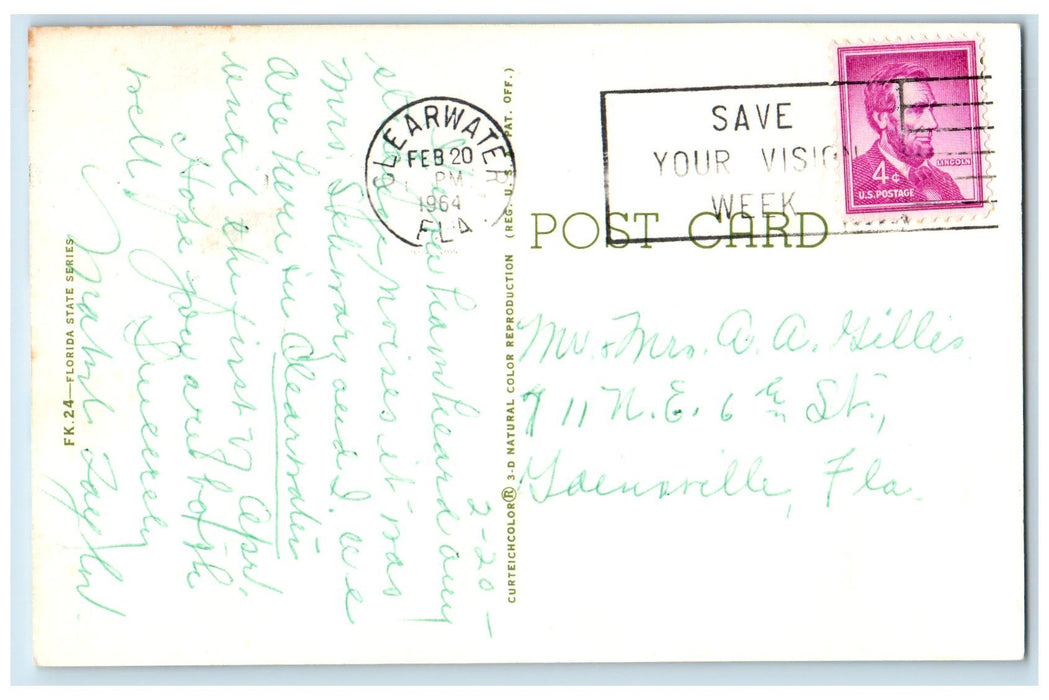 CLEARWATER
FEB 20
PM
1964
FLA
SAVE
YOUR VISION
WEEK
LINCOLN
4¢
U.S. POSTAGE
POST CARD
Mr. & Mrs. A. A. Gillis
711 N.E. 6th St.,
Gainesville, Fla.
2-20-
heard any
noises it was
Mrs. and I. We
are here in Clearwater
until the first of Apr.
Hope you are both
well
Sincerely
Taylor
CURTEICHCOLOR® 3-D NATURAL COLOR REPRODUCTION (REG. U.S. PAT. OFF.)
FK.24—FLORIDA STATE SERIES